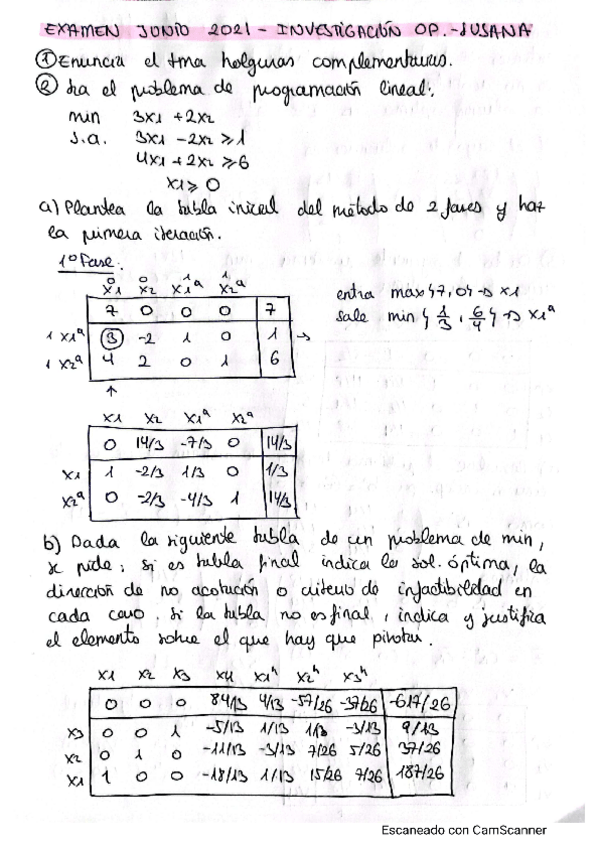 EXAMEN JUNIO 2021 - INVESTIGACIÓN OP. - SUSANA
① Enuncia el tma holguras complementarias.
② Sea el problema de programación lineal:
min 3x1 + 2x2
s.a. 3x1 - 2x2 ≥ 1
4x1 + 2x2 ≥ 6
x1 ≥ 0
a) Plantea la tabla inicial del método de 2 fases y haz
la primera iteración.
1º Fase:
0 0 1 1
x1 x2 x1ᵃ x2ᵃ
7 0 0 0 7
1 x1ᵃ 3 -2 1 0 1 →
1 x2ᵃ 4 2 0 1 6
↑
entra max {7, 0} → x1
sale min { 1/3 , 6/4 } → x1ᵃ
x1 x2 x1ᵃ x2ᵃ
0 14/3 -7/3 0 14/3
x1 1 -2/3 1/3 0 1/3
x2ᵃ 0 -2/3 -4/3 1 14/3
b) Dada la siguiente tabla de un problema de min,
se pide: si es tabla final indica la sol. óptima, la
dirección de no acotación o criterio de infactibilidad en
cada caso. Si la tabla no es final, indica y justifica
el elemento sobre el que hay que pivotar.
x1 x2 x3 x4 x1ʰ x2ʰ x3ʰ
0 0 0 84/13 4/13 -57/26 -37/26 -617/26
x3 0 0 1 -5/13 1/13 1/13 -3/13 9/13
x2 0 1 0 -11/13 -3/13 7/26 5/26 37/26
x1 1 0 0 -18/13 1/13 15/26 7/26 187/26
Escaneado con CamScanner